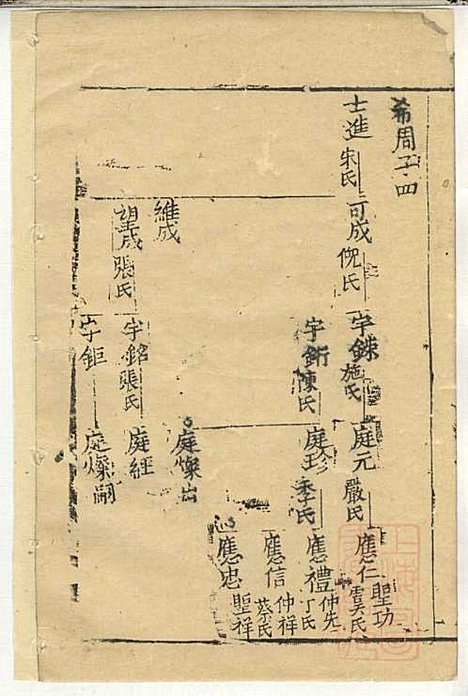 希周子四
士進 朱氏 可成 倪氏 宇銖 施氏 庭元 嚴氏 應仁 吳氏 聖功
宇銜 陳氏 庭珍 季氏 應禮 丁氏 仲先
應信 蔡氏 仲祥
應忠 聖祥
維成 庭燦出
望成 張氏 宇銘 張氏 庭經
宇鉅 庭燦嗣